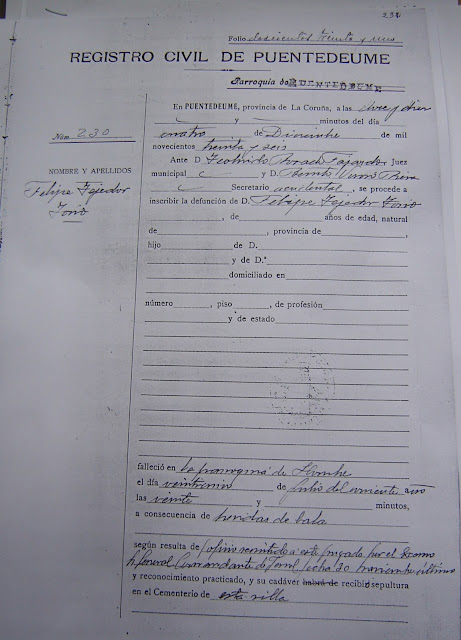 231
Folio doscientos treinta y uno
REGISTRO CIVIL DE PUENTEDEUME
Parroquia de PUENTEDEUME
Núm. 230
NOMBRE Y APELLIDOS
Felipe Tejedor
En PUENTEDEUME, provincia de La Coruña, a las doce y diez
y minutos del día
cuatro de Diciembre de mil
novecientos treinta y seis
Ante D. Juez
municipal y D.
Secretario accidental, se procede a
inscribir la defunción de D. Felipe Tejedor
, de años de edad, natural
de , provincia de ,
hijo de D.
y de D.ª
domiciliado en
número , piso , de profesión
y de estado
falleció en de
el día veintiuno de Julio del corriente año
las veinte y minutos,
a consecuencia de heridas de bala
según resulta de oficio remitido a este juzgado por el Excmo
General Comandante de Ferrol fecha 30 noviembre último
y reconocimiento practicado, y su cadáver habrá de recibió sepultura
en el Cementerio de esta villa